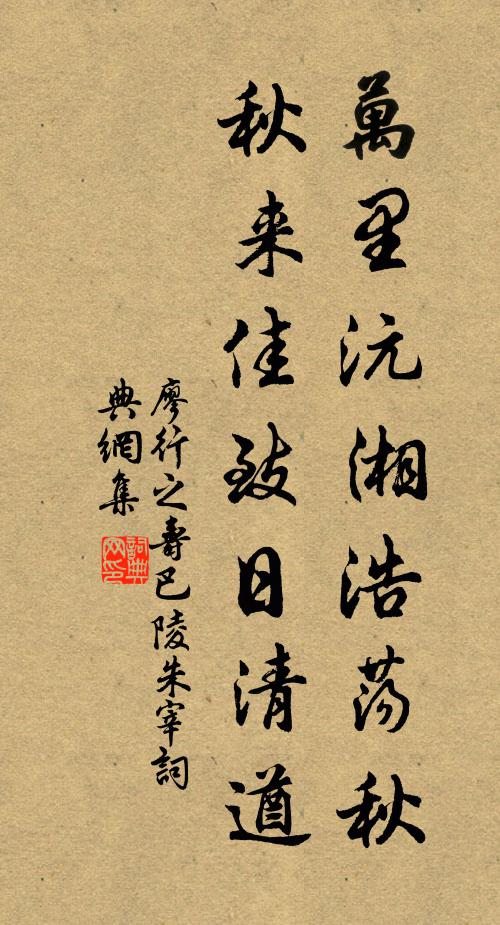 萬里沅湘浩蕩秋
秋来佳致日清遒
廖行之壽巴陵朱宰詞
典網集
詞典網印